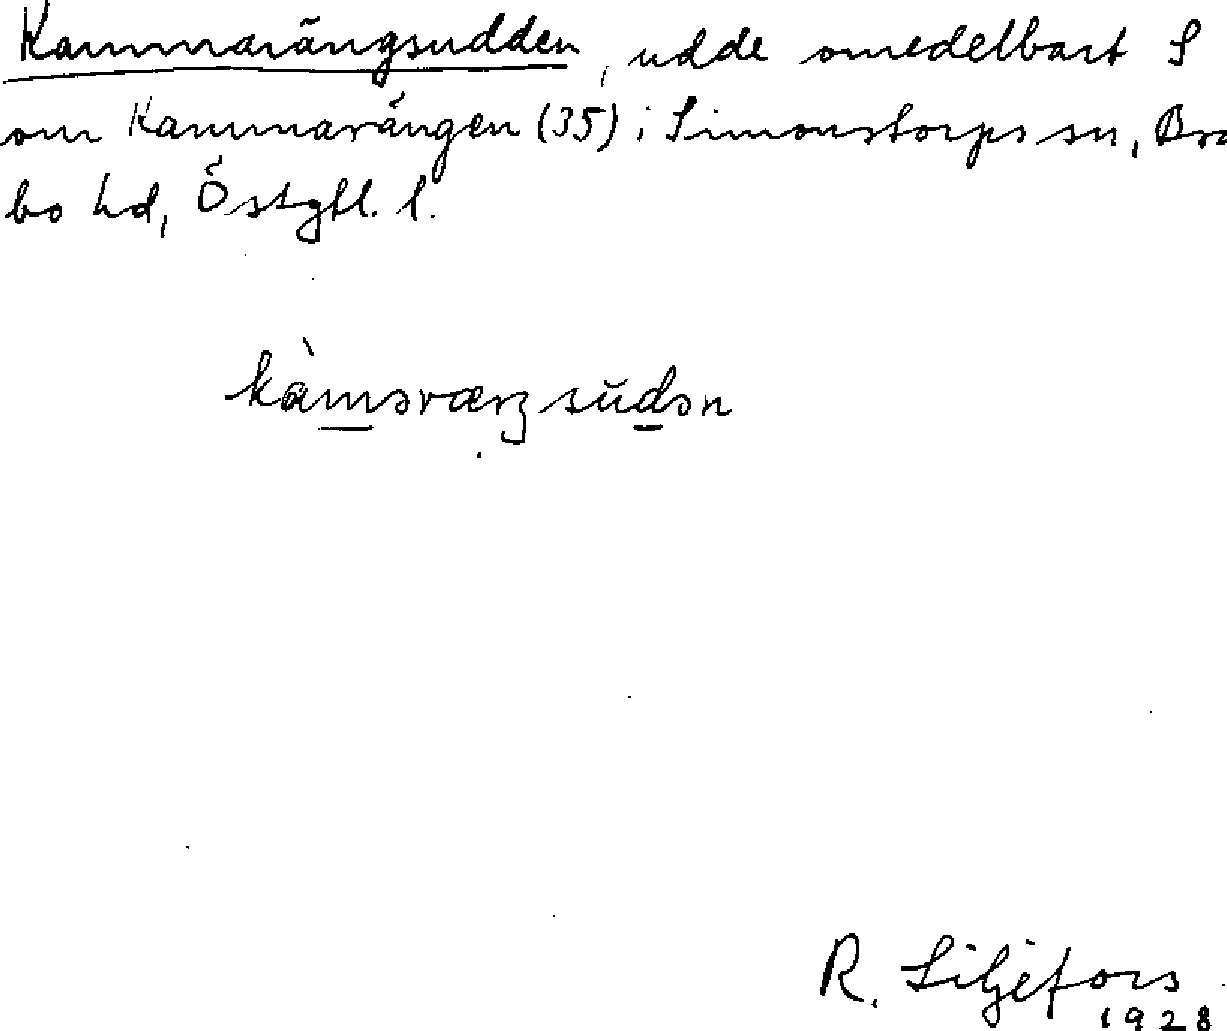 Kammarängsudden, udde omedelbart S
om Kammarängen (35) i Simonstorps sn, Brå
bo hd, Östgtl. l.
kàmərværŋsŭdən
R. Liljefors
1928